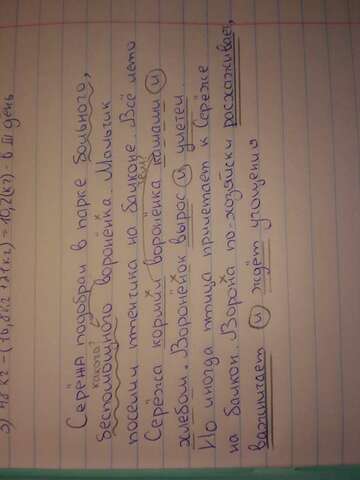 3) 48 кг – (16,8 кг + 21 кг) = 10,2 (кг) - в III день
Серёжа подобрал в парке больного,
какого?
беспомощного воронёнка. Мальчик
поселил птенчика на балконе. Всё лето
Серёжа кормил воронёнка кашами и
хлебом. Воронёнок вырос и улетел.
Но иногда птица прилетает к Серёже
на балкон. Ворона по-хозяйски расхаживает,
важничает и ждёт угощения